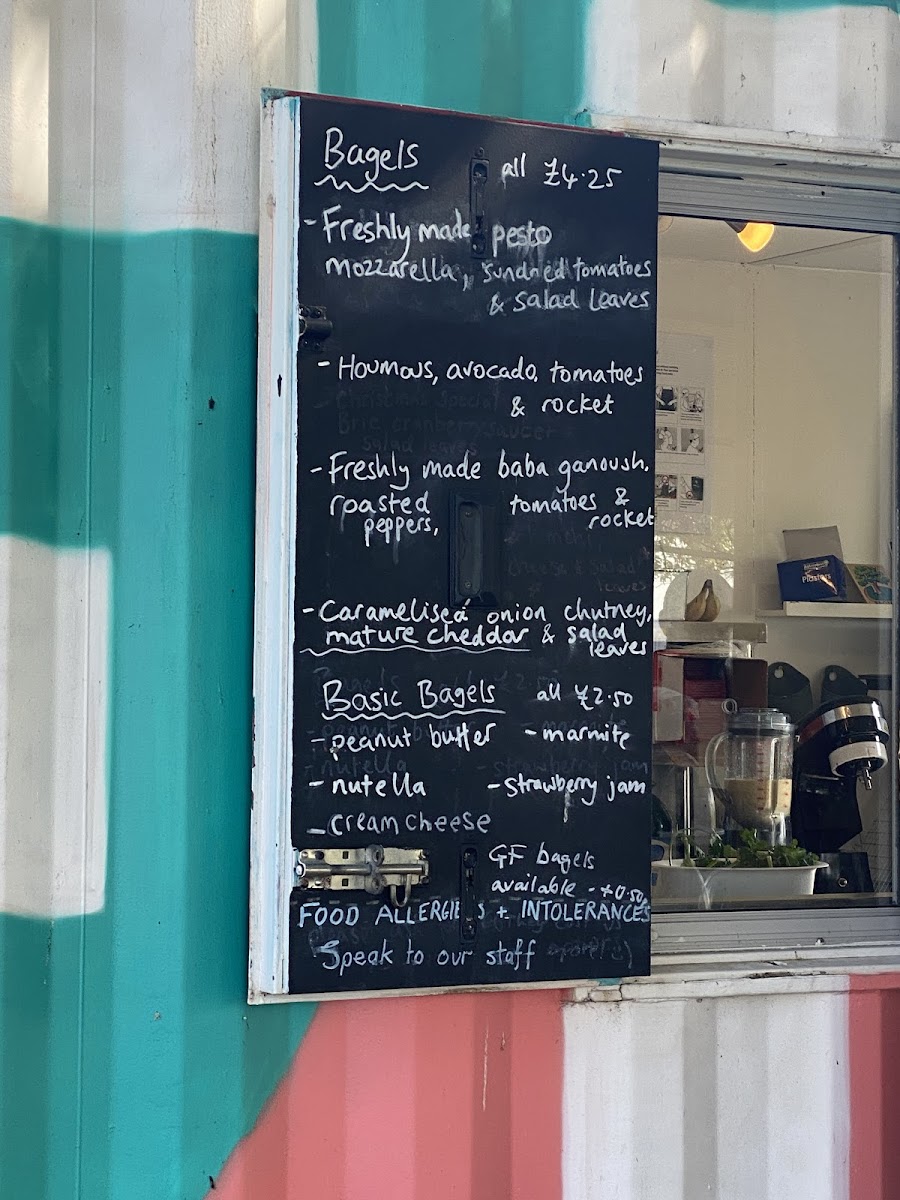 Bagels all £4.25
- Freshly made pesto
mozzarella, sundried tomatoes
& salad leaves
- Houmous, avocado, tomatoes
& rocket
- Freshly made baba ganoush,
roasted tomatoes &
peppers, rocket
- Caramelised onion chutney,
mature cheddar & salad
leaves
Basic Bagels all £2.50
- peanut butter - marmite
- nutella - strawberry jam
- cream cheese
GF bagels
available - +0.50
FOOD ALLERGIES + INTOLERANCES
Speak to our staff
Plasters